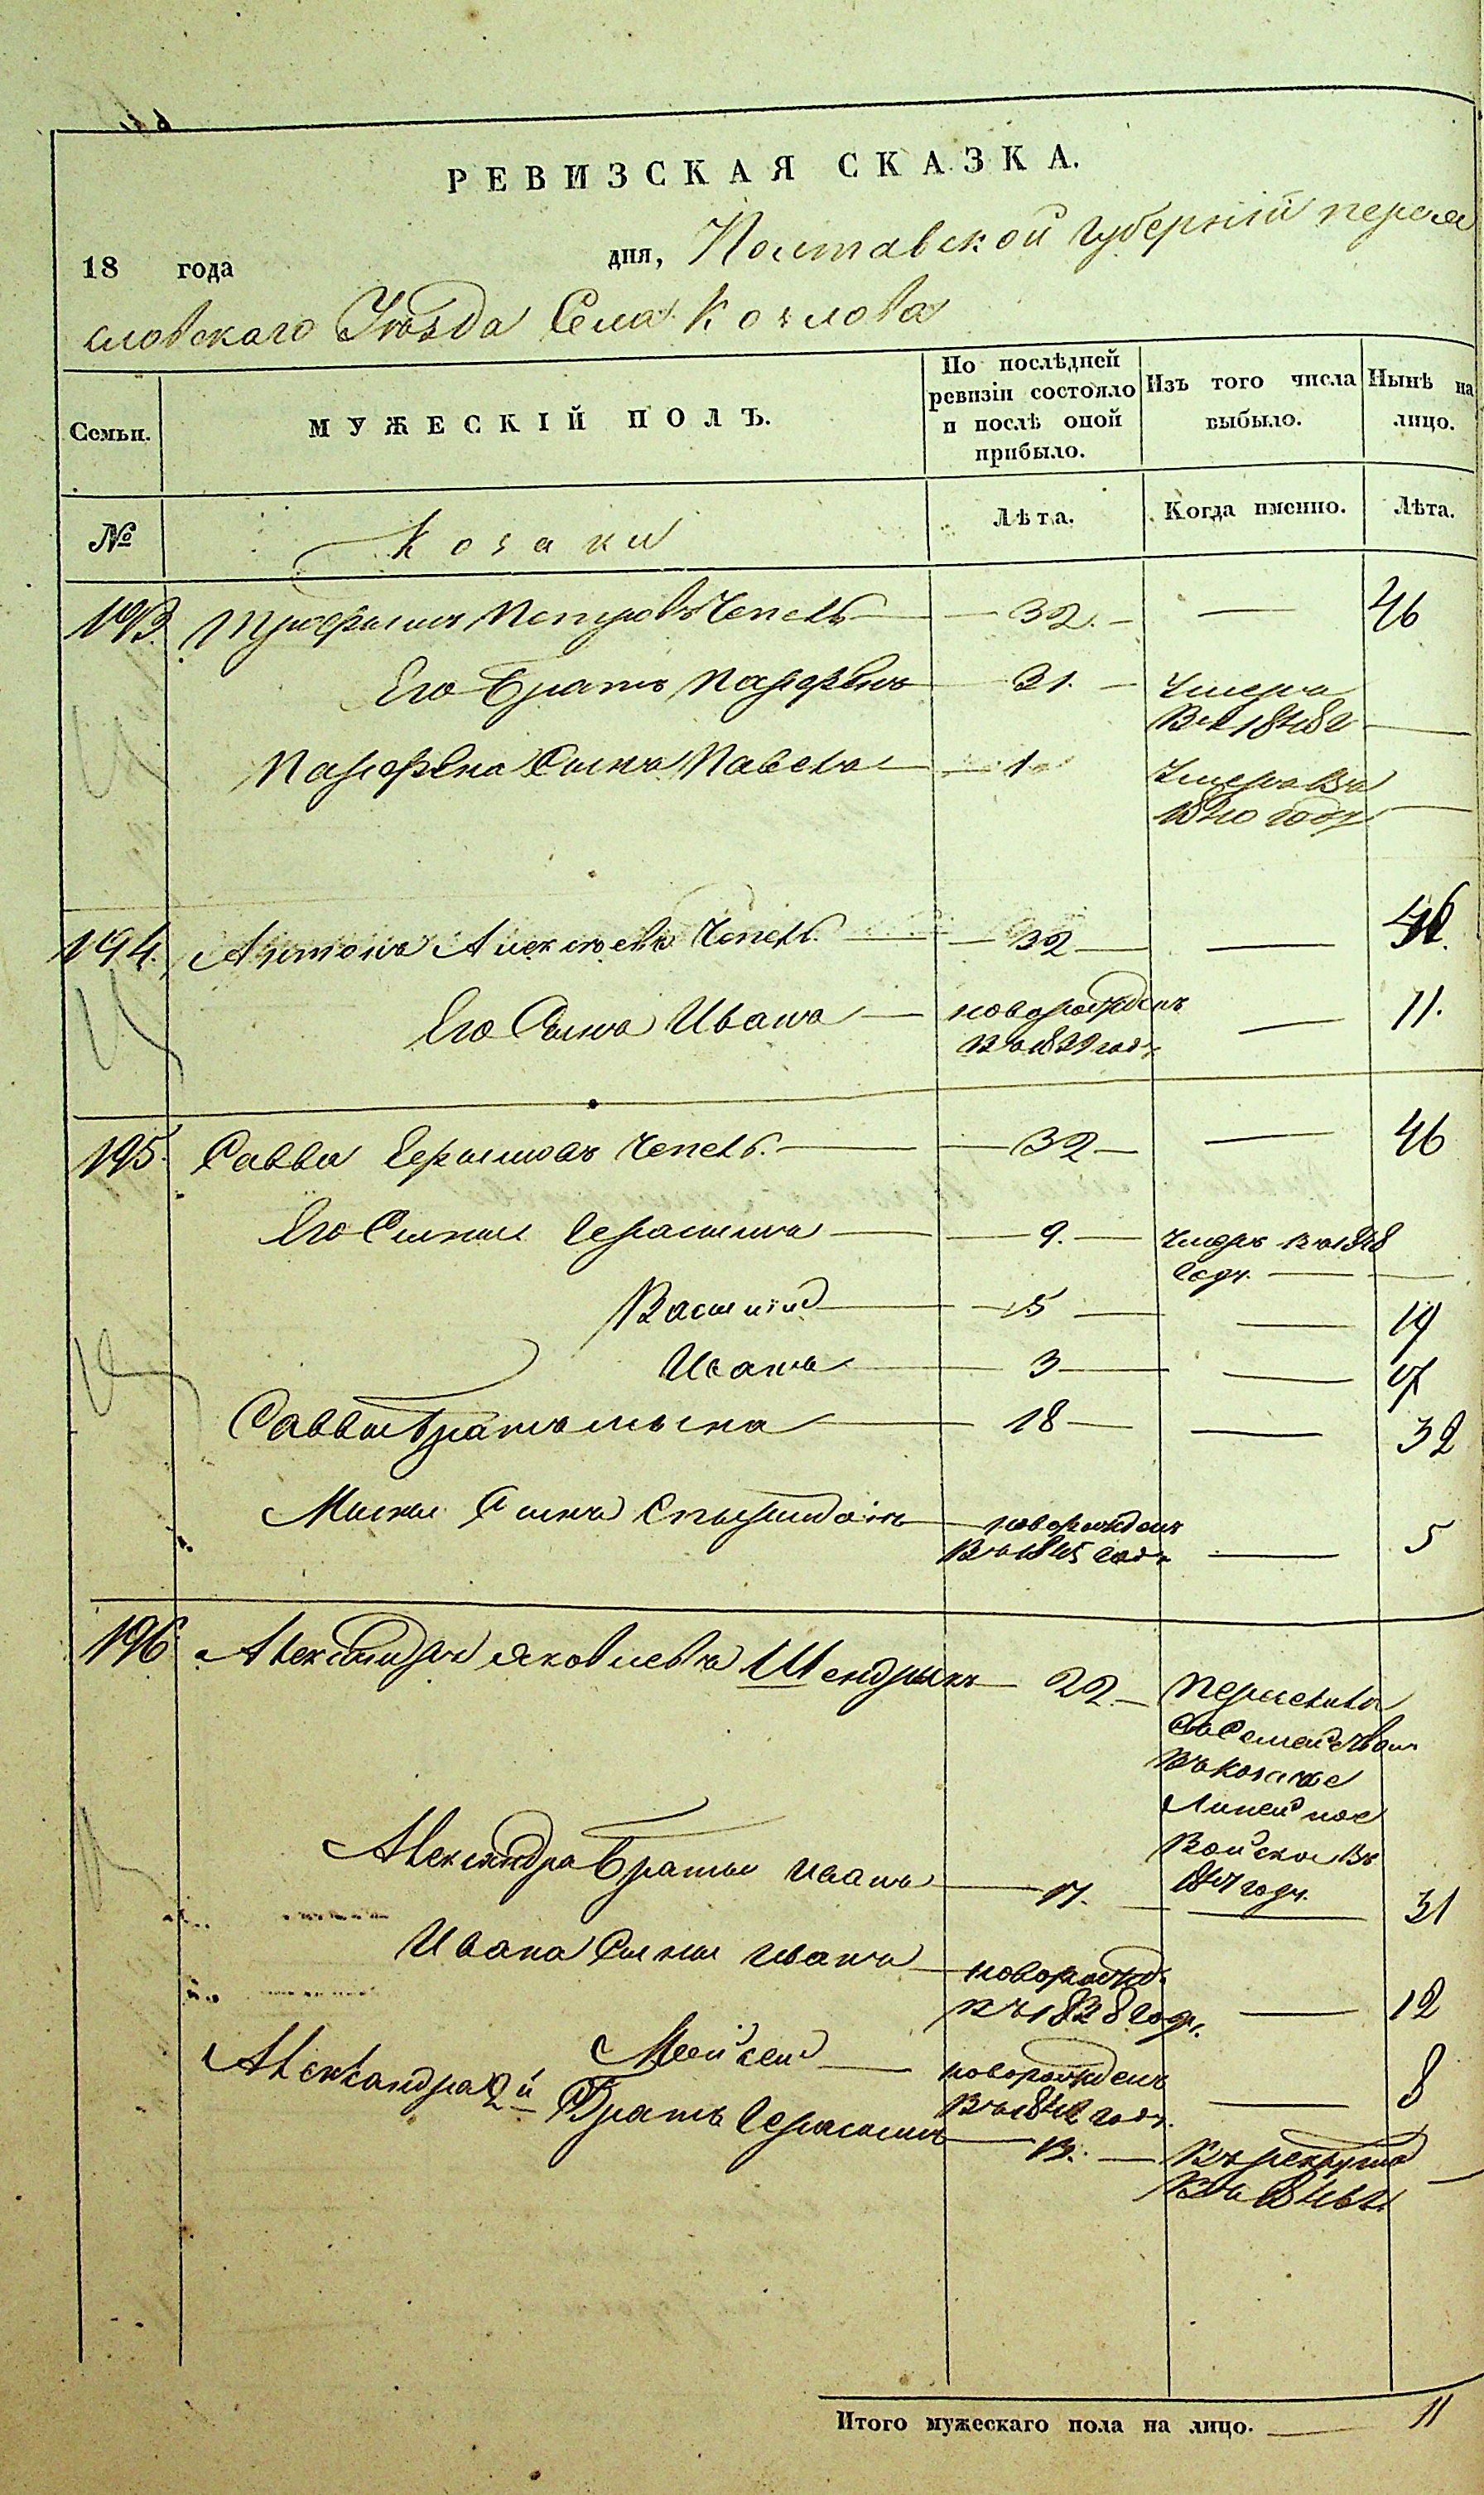 РЕВИЗСКАЯ СКАЗКА.
18 года дня, Полтавской Губерній перея
словскаго Уѣзда Села Козлова
Семьи. МУЖЕСКІЙ ПОЛЪ. По послѣдней ревизіи состояло и послѣ оной прибыло. Изъ того числа выбыло. Нынѣ на лицо.
№ Козаки Лѣта. Когда именно. Лѣта.
193. Трофимъ Петровъ Чепель 32. 46
Его братъ Парфенъ 31. Умеръ
въ 1848 г
Парфена Сынъ Павелъ 1 Умеръ въ
1840 году
194. Антонъ Алексѣевъ Чепель 32 46
Его Сынъ Иванъ новорожденъ 11.
въ 1839 году
195. Савва Герасимовъ Чепель. 32 46
Его Сыны Герасимъ 9. Умеръ въ 1848
году.
Василій 5 19
Иванъ 3 17
Саввы братъ 18 32
Сынъ Спиридонъ новорожденъ 5
въ 1845 году
196 Александръ Яковлевъ Шендрикъ 22. Перечисленъ
съ Семействомъ
въ козачье
Линейное
Войско въ
1847 году.
Александра братья Иванъ 17. 31
Ивана Сыны Иванъ новорожд. 12
въ 1838 году.
Мойсей новорожденъ 8
въ 1842 году.
Александра 2й Братъ Герасимъ 13. Въ рекруты
въ
Итого мужескаго пола на лицо. 11